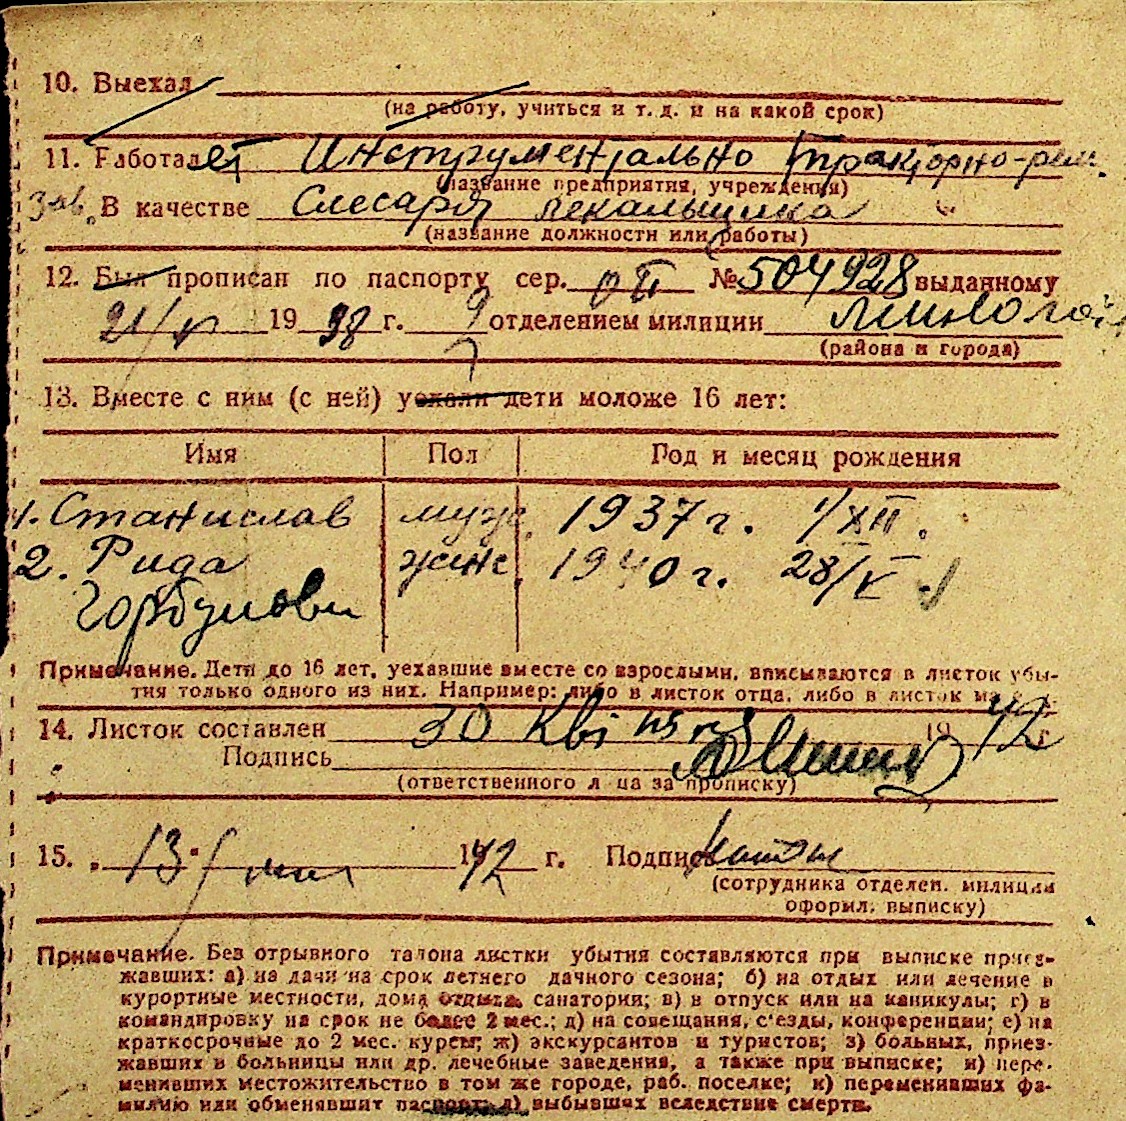 10. Выехал
(на работу, учиться и т. д. и на какой срок)
11. Работает Инструментально тракторно-рем.
(название предприятия, учреждения)
Зав. В качестве Слесаря лекальщика
(название должности или работы)
12. Был прописан по паспорту сер. № 504928 выданному
21/ 19 38 г. 9 отделением милиции
(района и города)
13. Вместе с ним (с ней) уехали дети моложе 16 лет:
Имя Пол Год и месяц рождения
1. Станислав муж. 1937 г. 1/XII.
2. Рида жен. 1940 г. 28/V
Горбуновы
Примечание. Дети до 16 лет, уехавшие вместе со взрослыми, вписываются в листок убы-
тия только одного из них. Например: либо в листок отца, либо в листок
14. Листок составлен 30 Квітня 19 42 г.
Подпись
(ответственного лица за прописку)
15. „ 13 " мая 1942 г. Подпись
(сотрудника отделен. милиции
оформил. выписку)
Примечание. Без отрывного талона листки убытия составляются при выписке приез-
жавших: а) на дачи на срок летнего дачного сезона; б) на отдых или лечение в
курортные местности, дома отдыха, санатории; в) в отпуск или на каникулы; г) в
командировку на срок не более 2 мес.; д) на совещания, с'езды, конференции; е) на
краткосрочные до 2 мес. курсы; ж) экскурсантов и туристов; з) больных, приез-
жавших в больницы или др. лечебные заведения, а также при выписке; и) пере-
менивших местожительство в том же городе, раб. поселке; к) переменивших фа-
милию или обменявшит паспорт; л) выбывших вследствие смерти.